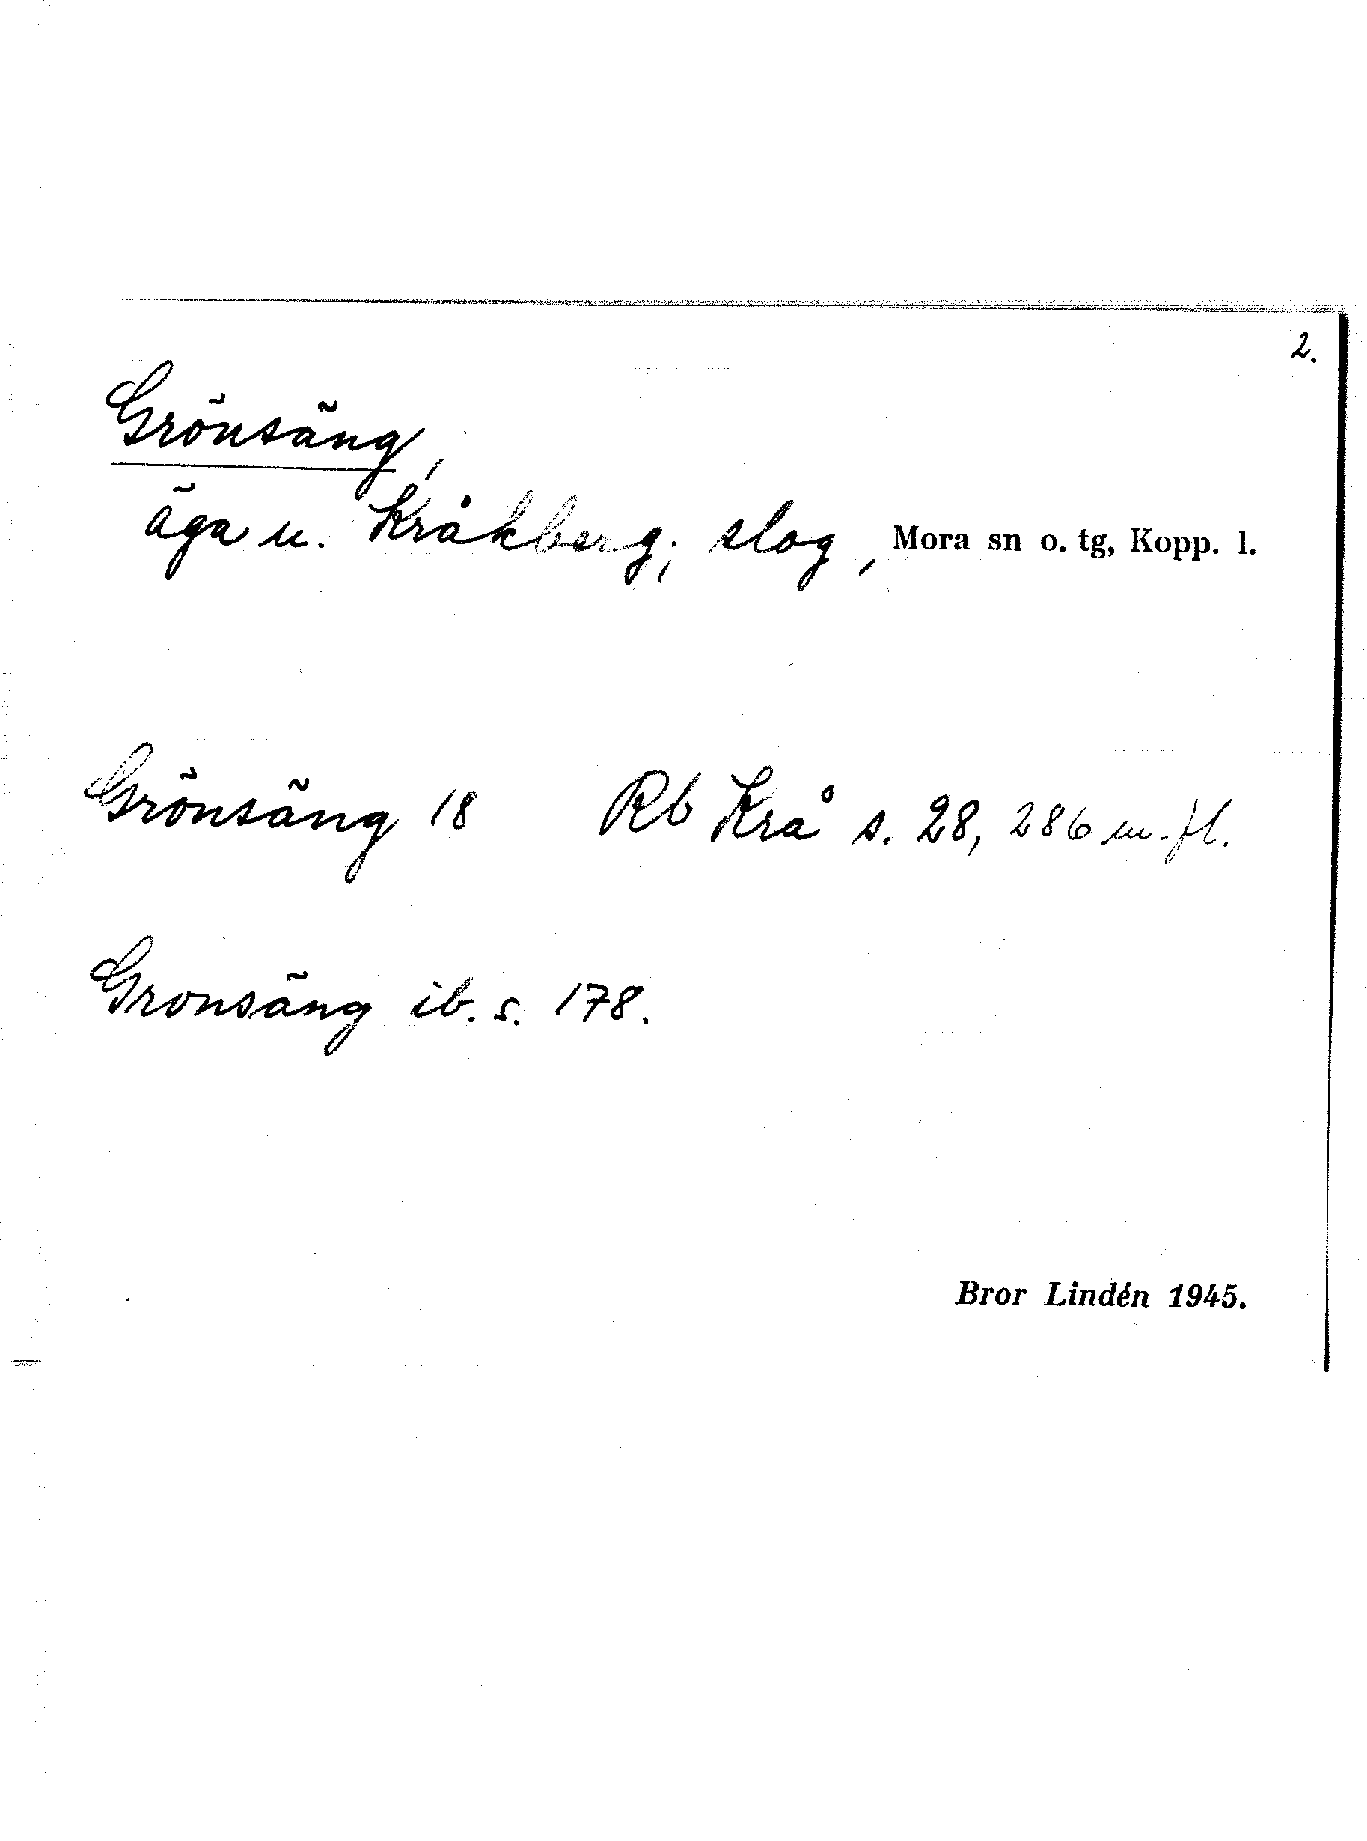 2.
Grönsäng,
äga u. Kråkberg; slog, Mora sn o. tg, Kopp. l.
Grönsäng 18 Rb Krå s. 28, 286 m. fl.
Gronsäng ib. s. 178.
Bror Lindén 1945.